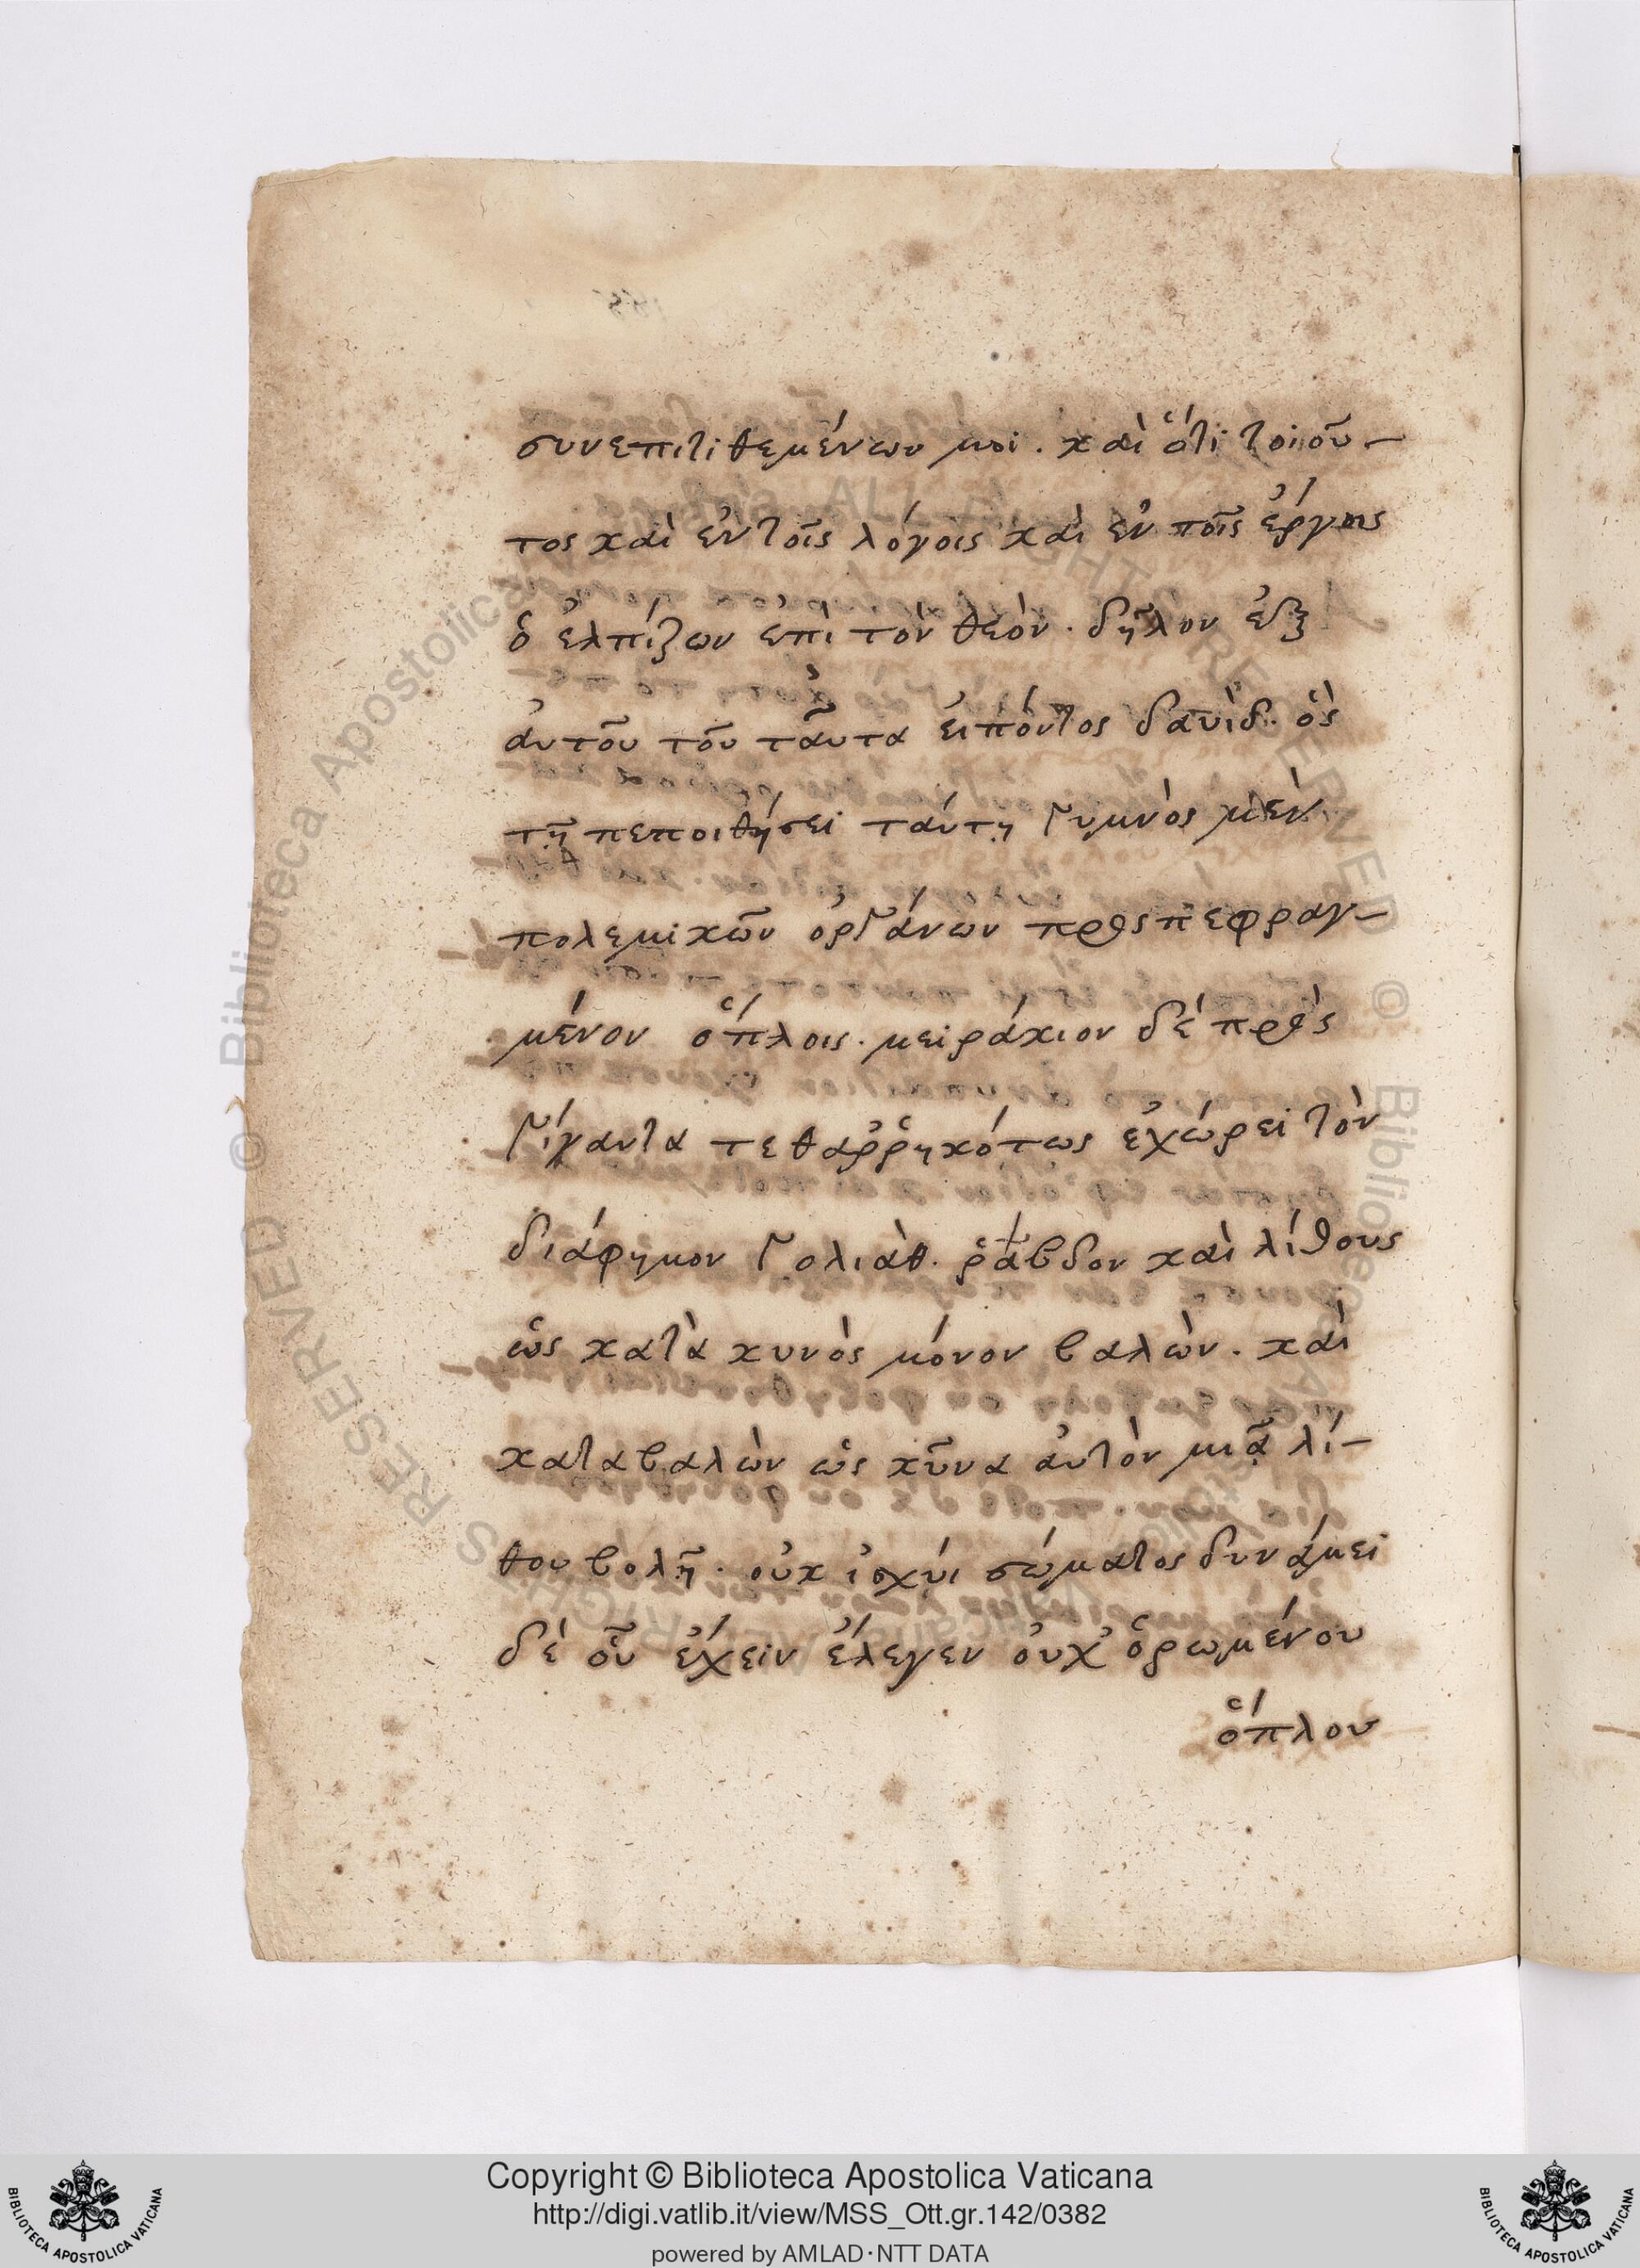 συνεπιτιθεμένων μοι. καὶ ὅτι τοιοῦ-
τος καὶ ἐν τοῖς λόγοις καὶ ἐν τοῖς ἔργοις
ὁ ἐλπίζων ἐπὶ τὸν θεὸν. δῆλον
ἀυτοῦ τοῦ ταῦτα ἐιπόντος δαυὶδ. ὃς
τῆ πεποιθήσει τάυτῃ Γυμνὸς μὲν
πολεμικῶν ὀργάνων πρὸς πεφραγ-
μένον ὅπλοις. μειράκιον δὲ πρὸς
Γίγαντα τεθαῤῥηκότως ἐχώρει τὸν
διάφημον Γολιὰθ. ῥάβδον καὶ λίθους
ὡς κατὰ κυνὸς μόνον βαλὼν. καὶ
καταβαλὼν ὡς κῦνα ἀυτὸν μιᾷ λί-
θου βολῇ. οὐκ ἰσχύι σώματος δυνάμει
δὲ οὗ ἔχειν ἔλεγεν ὀυχ ὁρωμένου
ὅπλου
Copyright © Biblioteca Apostolica Vaticana
http://digi.vatlib.it/view/MSS_Ott.gr.142/0382
powered by AMLAD·NTT DATA
BIBLIOTECA APOSTOLICA VATICANA
BIBLIOTECA APOSTOLICA VATICANA